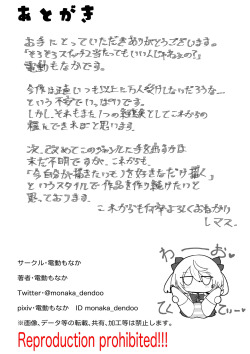 あとがき
お手にとっていただきありがとうございます。
「そろそろスイッチ2当たってもいいんじゃねぇの?」
電動もなかです。
今作は正直いつも以上に万人受けしないだろうな…
という不安でいっぱりです。
しかし、それもまた1つの経験としてこれからの
糧にできればと思います。
次、改めてこのジャンルに手を出るかは
まだ不明ですがこれからも、
「今自分が描きたいモノを好きなだけ描く」
というスタイルで作品を作り続けたいと
思っております。
これからも何卒よろしくおねがい
しマス。
わーお
ひ
てぃー
サークル・電動もなか
著者・電動もなか
Twitter・@monaka_dendoo
pixiv・電動もなか ID monaka_dendoo
※画像、データ等の転載、共有、加工等は禁止します。
Reproduction prohibited!!!